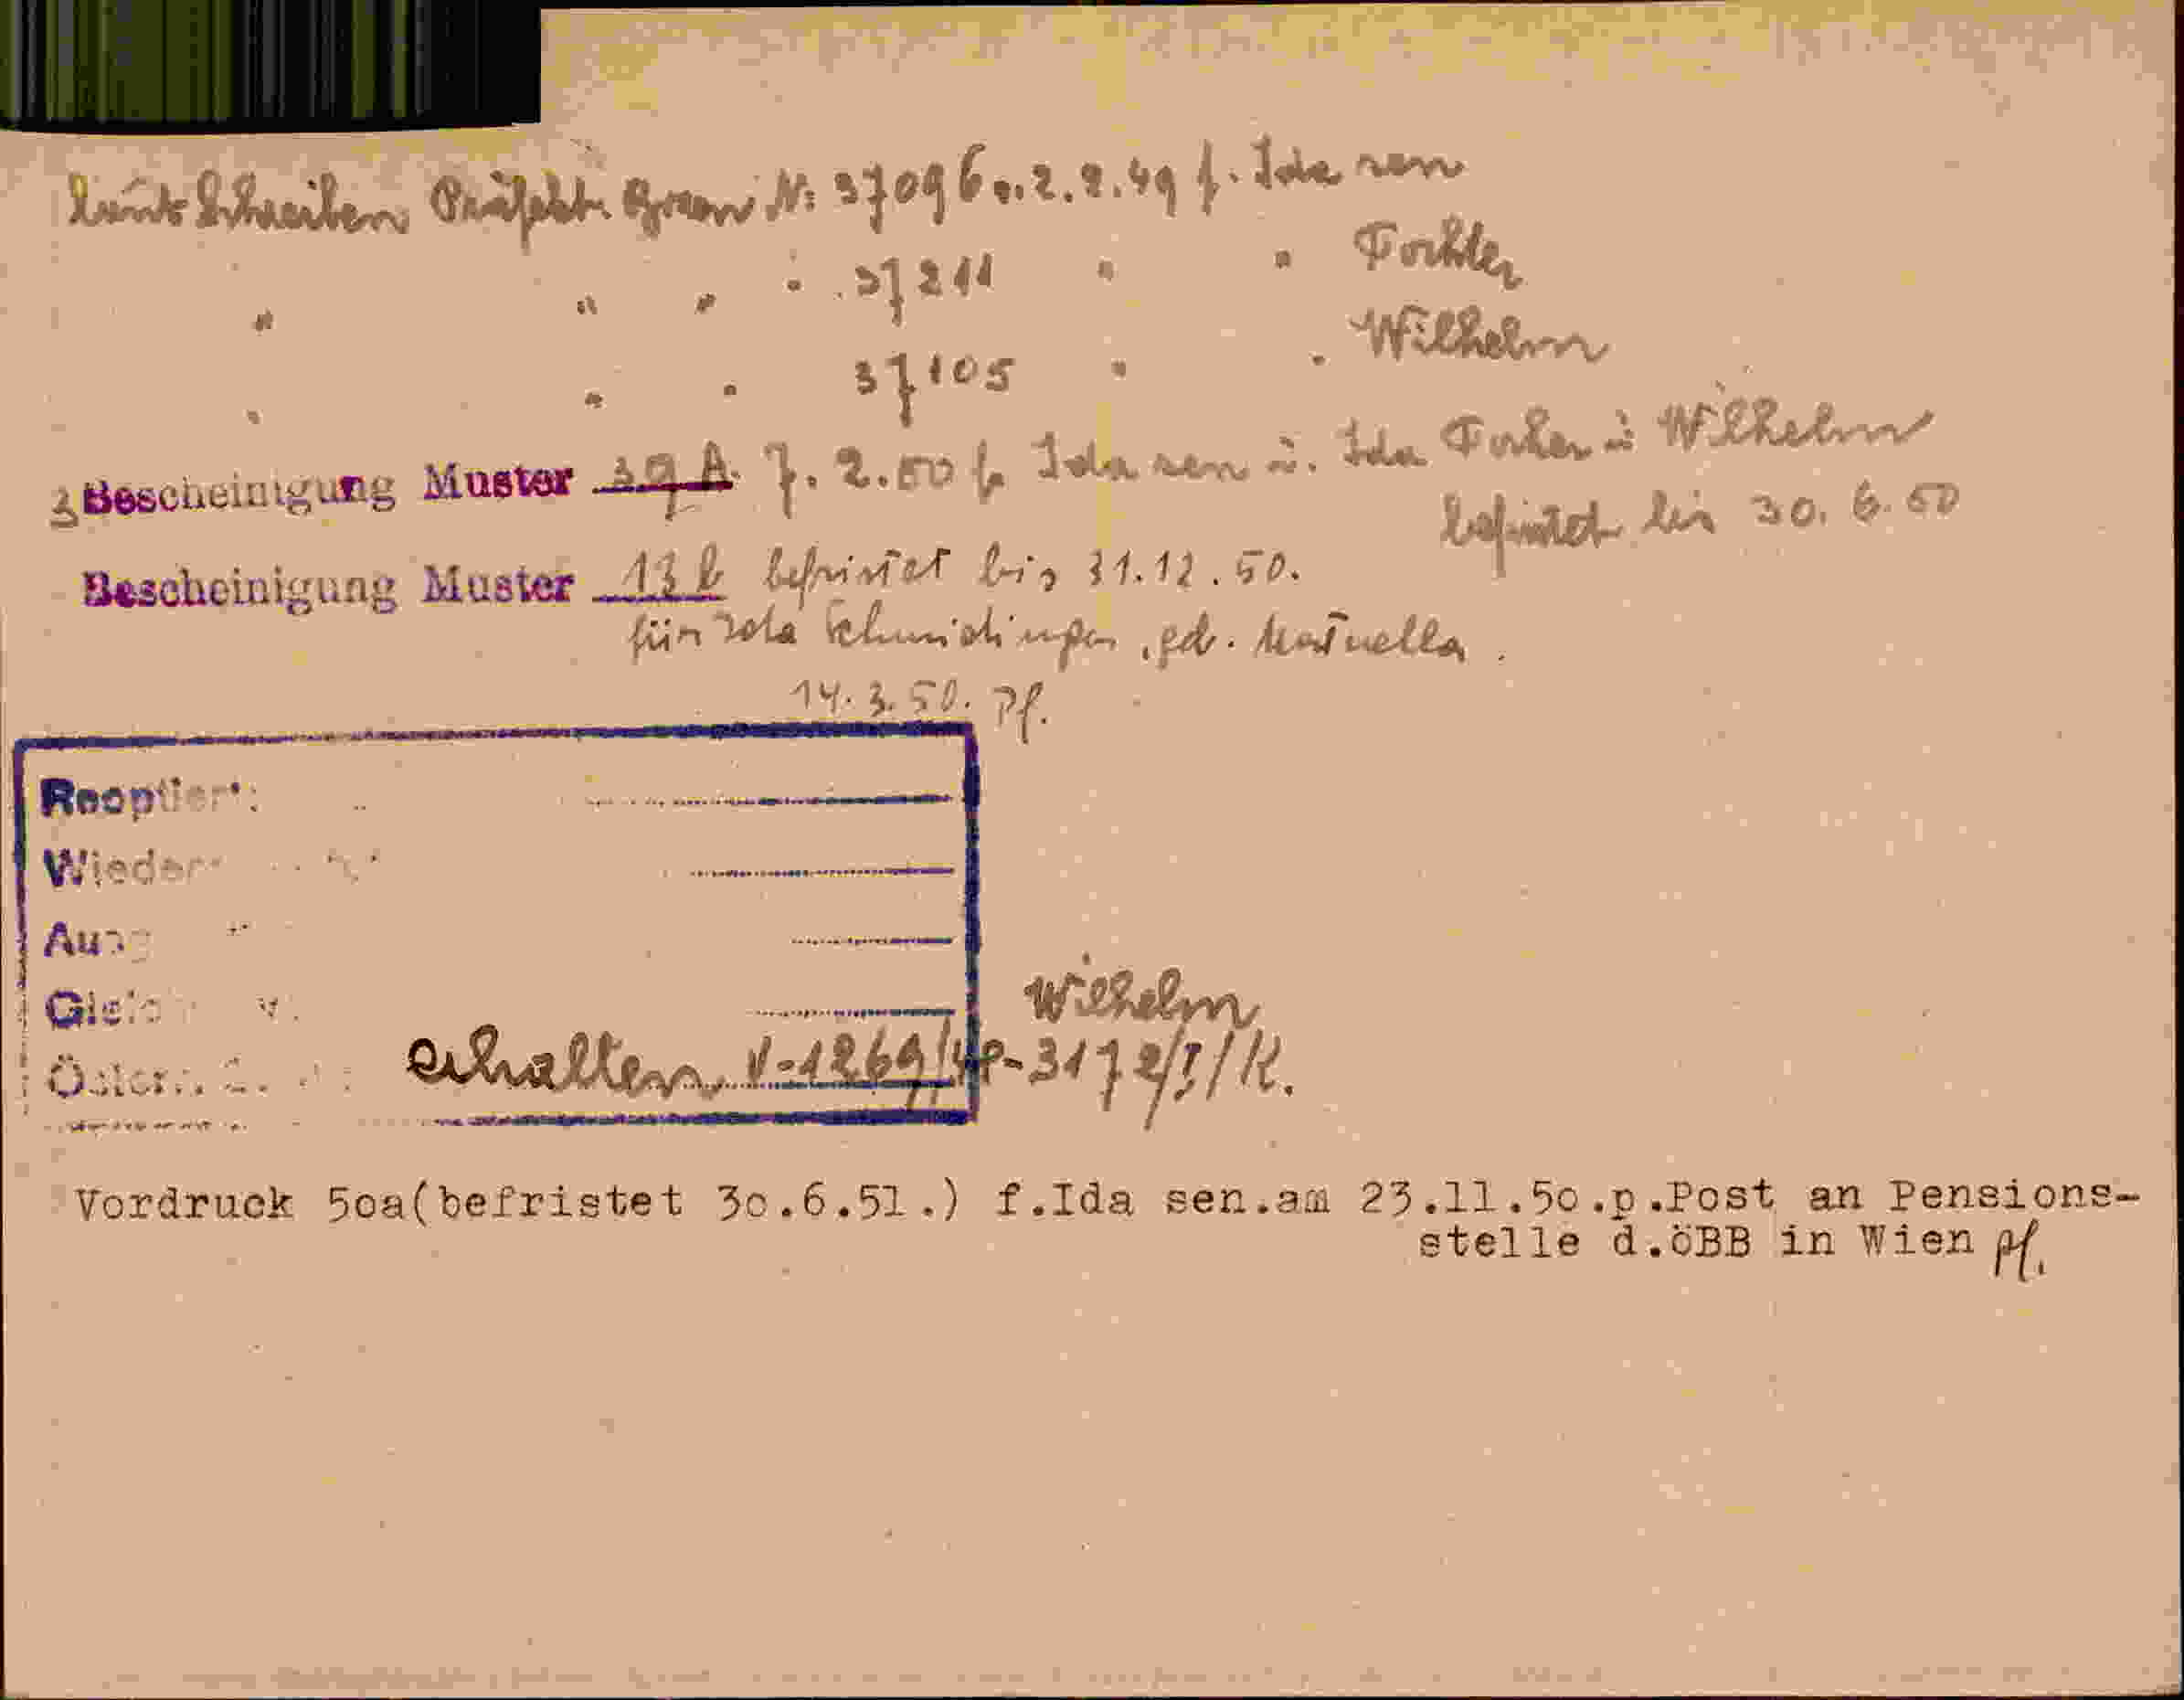 laut Schreiben Präfekt. Bozen Nr. 37096 v. 2.2.49 f. Ida sen
" " " " 37211 " " Tochter
" " " 37105 " " Wilhelm
3 Bescheinigung Muster 39 A. 7.2.50 f. Ida sen u. Ida Tochter u. Wilhelm
befristet bis 30.6.50
Bescheinigung Muster 13 b befristet bis 31.12.50.
für Ida Schmidinger, geb.
14.3.50. Pf.
Reoptiert:
Wilhelm
erhalten V-1269/48-3172/I/K.
Vordruck 50a(befristet 30.6.51.) f.Ida sen.am 23.11.50.p.Post an Pensions-
stelle d.öBB in Wien Pf.